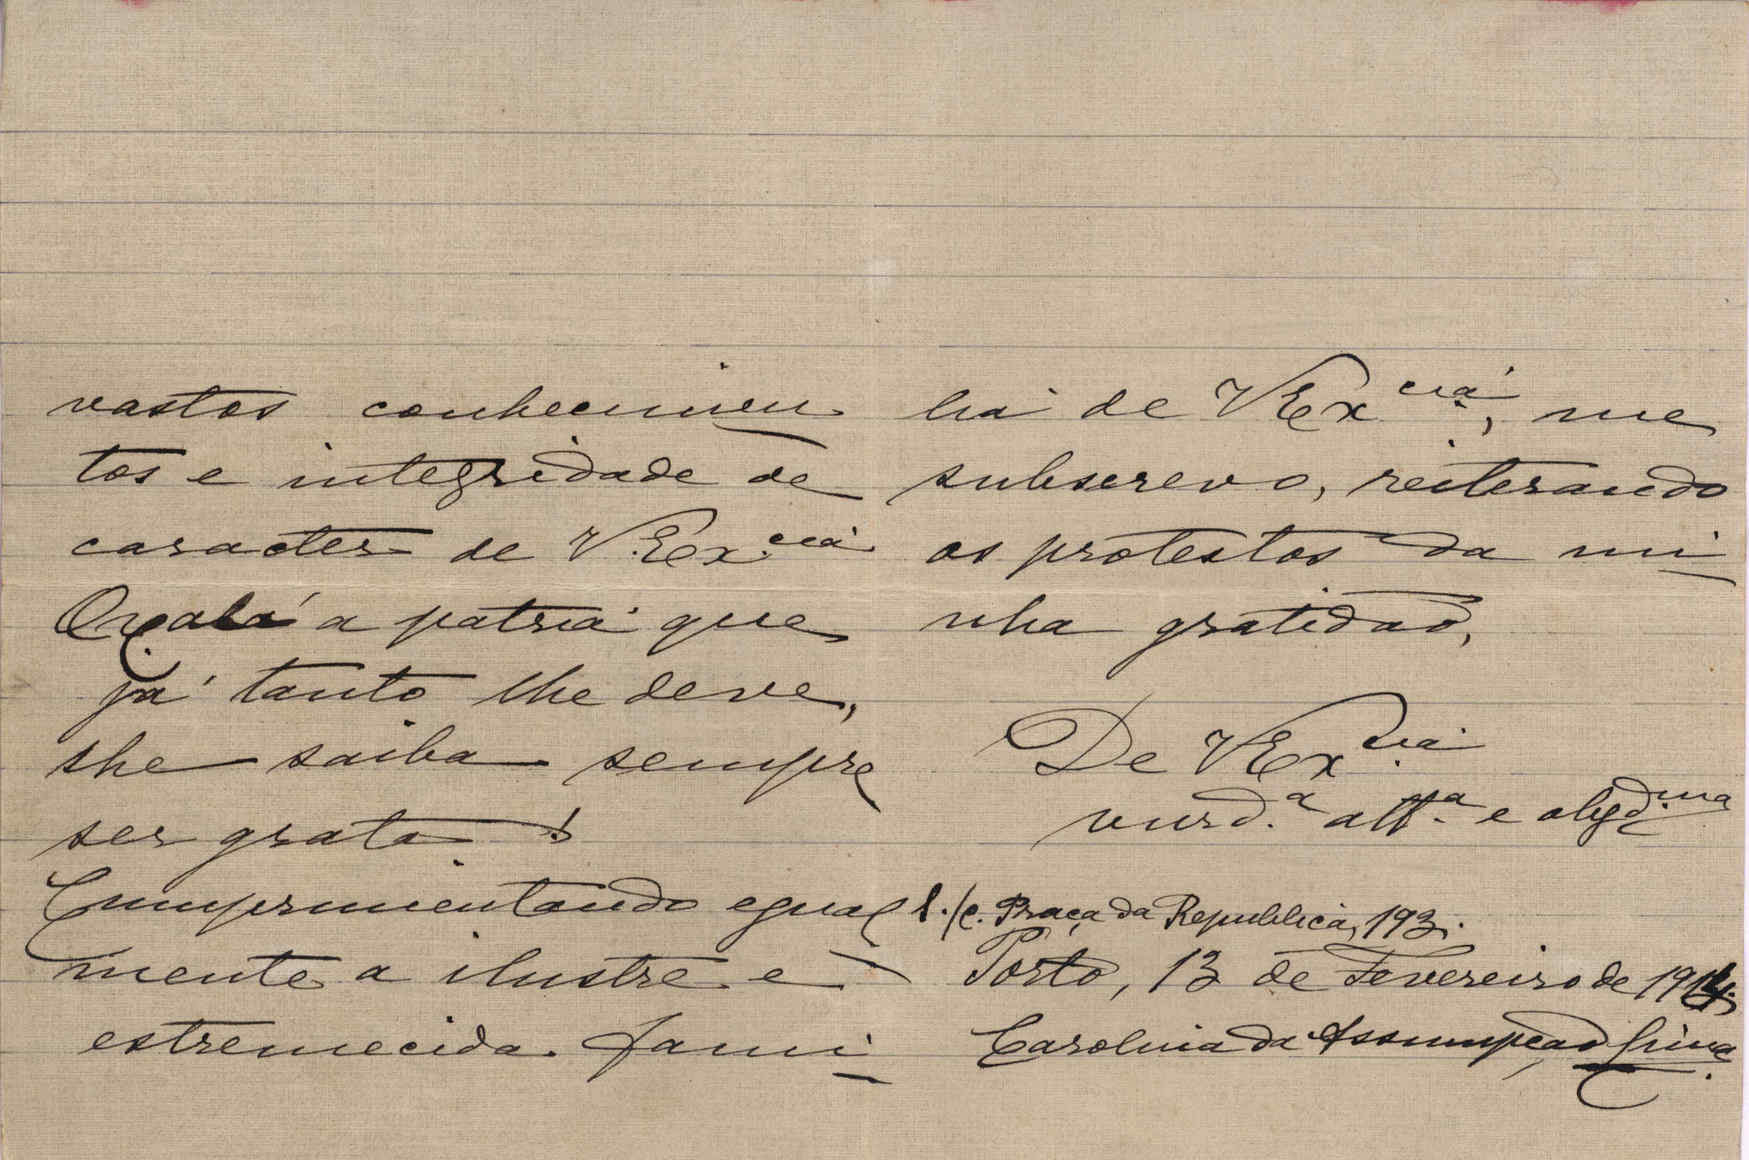 vastos conhecimen-
tos e integridade de
caracter de V. Ex.cia
Oxalá a patria que
já tanto lhe deve,
lhe saiba sempre
ser grata!
Cumprimentando egual-
mente a ilustre e
estremecida fami-
lia de V Ex.cia, me
subscrevo, reiterando
os protestos da mi-
nha gratidão,
De V Ex.cia
att.a e obgd.ma
S./c. Praça da Republica, 193.
Porto, 13 de Fevereiro de 1914.
Carolina da Assumpção Lima.